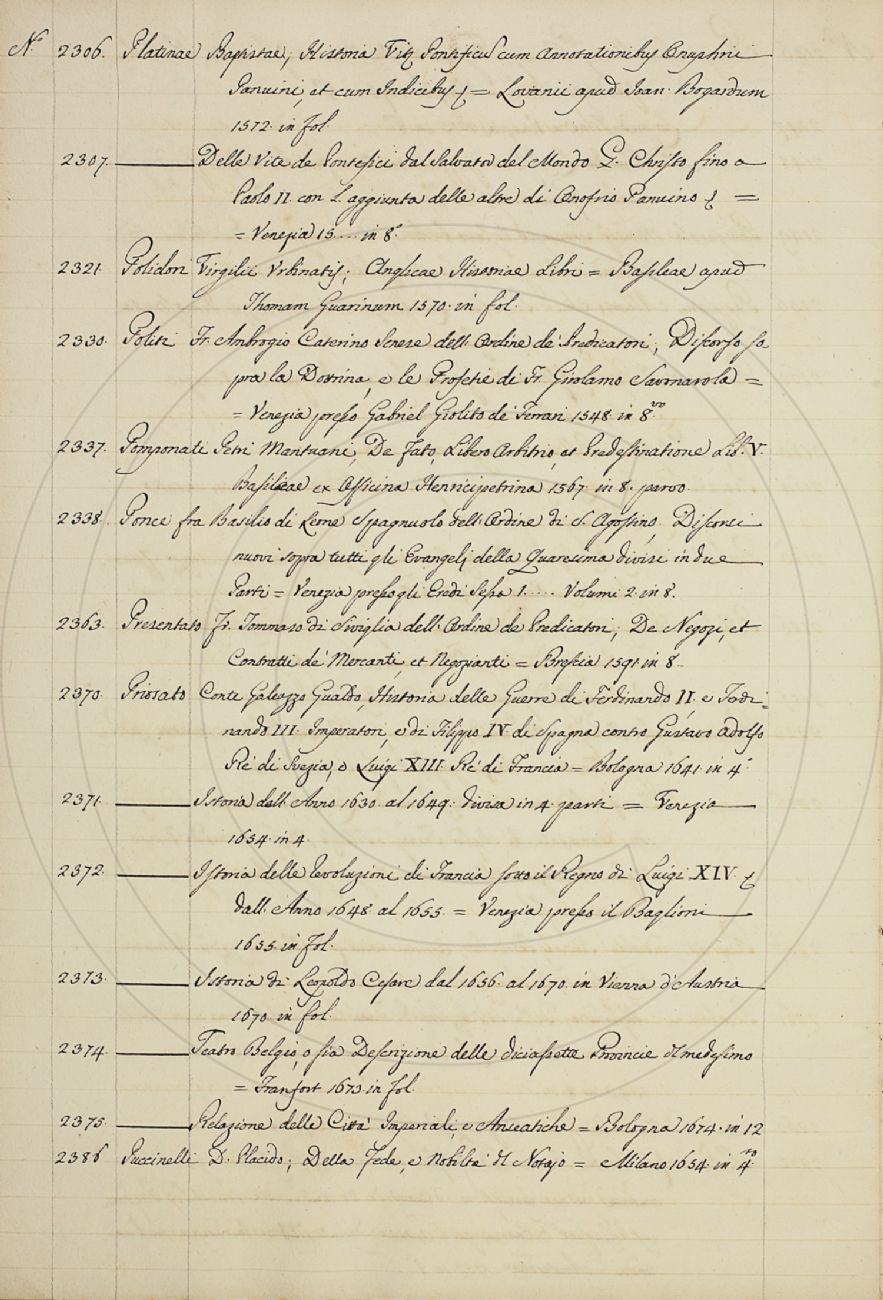 N.° 2306. Platinae Baptistae; Historia Vitę Pontificus cum Annotationibus Onuphrii
Panvini, et cum Indicibus = Lovanii apud Joan: Bogardum
1572. in fol.
2307. Delle Vite de Pontefici dal Salvatr del Mondo G. Christo fino a
Paolo II. con l'aggiunta delle altre di Onofrio Panvino =
= Venezia 15.... in 8.°
2321. Polidori Virgilii Vrbinatis; Anglicae Historiae Libri = Basileae apud
Thomam Guarinum 1570. in fol.
2330. Politi Fr. Ambrogio Caterino Senese dell'Ordine de' Predicatori; Discorso so
pra la Dottrina, e le Profetie di Fr. Girolamo Savonarola =
= Venezia presso Gabriel Giolito de' Ferrari 1548. in 8.vo
2337. Pomponati Petri Mantuani, De Fato, Libero Arbitrio, et Predestinatione Lib. V.
Basileae ex Officina Henricipetrina 1567. in 8. parvo.
2338. Ponce fra Basilio di Leone Spagnuolo dell'Ordine di S. Agostino, Discorsi
nuovi sopra tutti gli Evangelj della Quaresima divisi in due
Parti = Venezia presso gli Eredi Sessa 1..... Volumi 2. in 8.
2363. Presentato Fr. Tommaso di Siviglia dell'Ordine de Predicatori; De Negozi, et
Contratti de' Mercanti, et Negozianti = Brescia 1591. in 8.
2370. Priorato Conte Galeazzo Gualdo, Historia delle Guerre di Ferdinando II. e Ferdi=
nando III. Imperatori, e di Filippo IV. di Spagna contro Gustavo Adolfo
Rè di Svezia, e Luigi XIII. Rè di Francia = Bologna 1641. in 4.°
2371. Istoria dell'Anno 1630. al 1649. divisa in 4. parti = Venezia
1654. in 4.
2372. Istoria delle Revoluzioni di Francia sotto il Regno di Luigi XIV.
dall'Anno 1648. al 1655. = Venezia presso il Baglioni
1655. in fol.
2373. Istoria di Leopoldo Cesare dal 1656. al 1670. in Vienna d'Austria
1670. in fol.
2374. Teatro Belgio, o sia Descrizione delle diciassette Provincie il medesimo
= Franfort 1673. in fol.
2375. Relazione delle Città Imperiali, e Anseatiche = Bologna 1674. in 12
2386 Puccinelli D. Placido; Della Fede, e Nobiltà del Notajo = Milano 1654. in 4.to